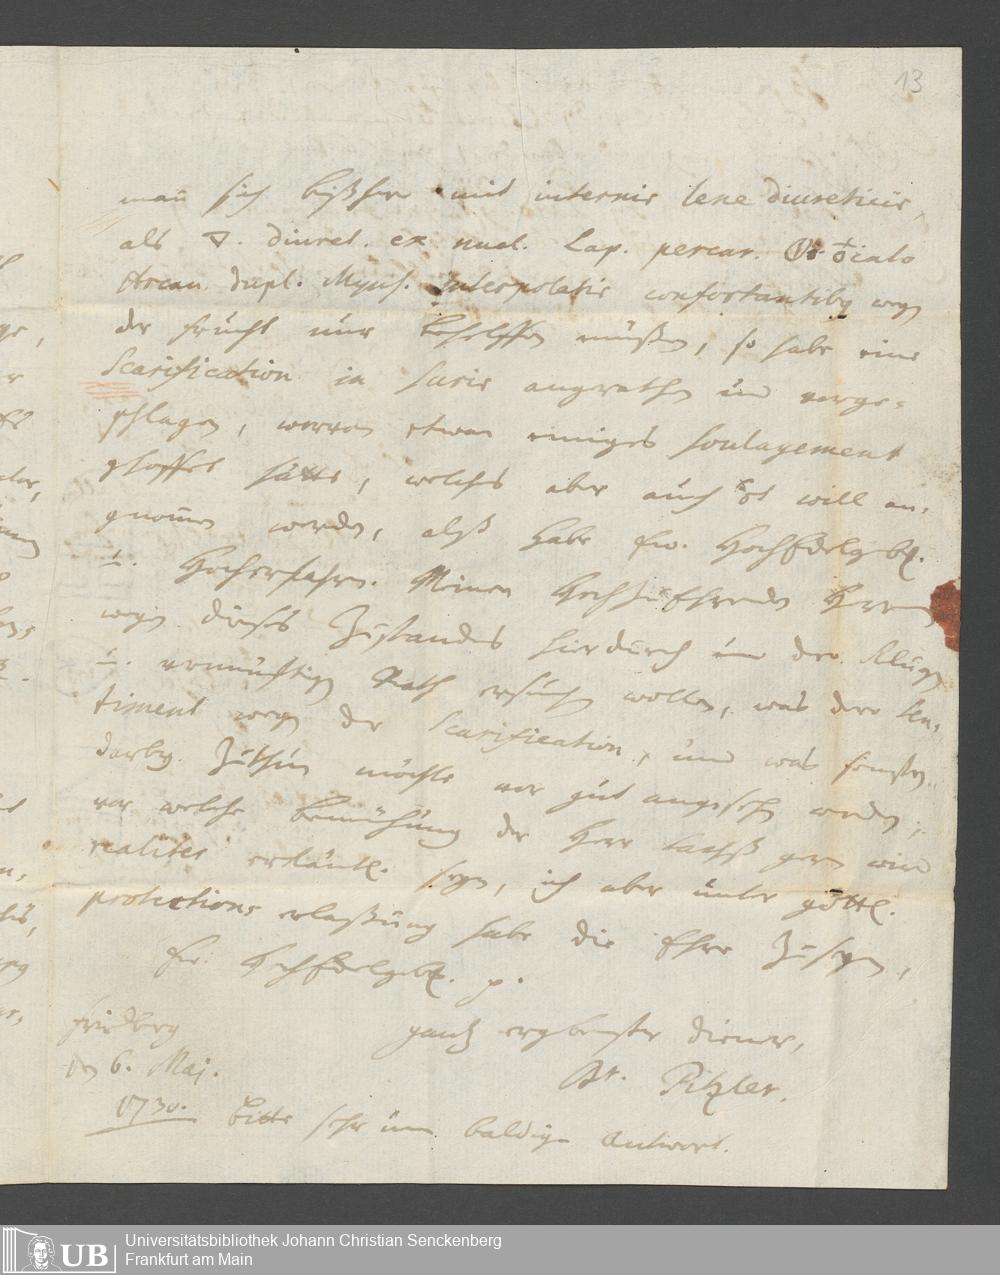 13
man sich bißhero mit internis lene diureticis,
als diuret. ex nucl. Lap. percar.
Arcan. dupl. Myns. interpolatis confortantibq wegen
der frucht nur behelffen müßen, so habe eine
Scarification in suris angerathen und vorge-
schlagen, worvon etwan einiges soulagement
gehoffet hätte, welches aber auch will an-
genommen werden, alß habe Ew. HochEdelgeb.
u. Hocherfahrn. Meinen HochzuEhrenden Herrn
wegen dieses Zustandes hierdurch um dero klugen
u. vernünftigen Rath ersuchen wollen, was dero Sen-
timent wegen der Scarification, und was sonsten
darbey zuthun möchte vor gut angesehen werden,
vor welche bemühung der Herr gern wird
realiter erkäntl. seyn, ich aber unter göttl.
protections erlaßung habe die Ehre zu seyn,
Ew. HochEdelgeb. p.
Friedberg
den 6. Maj.
1730.
gantz ergebenster diener,
Dr. Pitzler.
bitte sehr um baldige Antwort.
UB
Universitätsbibliothek Johann Christian Senckenberg
Frankfurt am Main